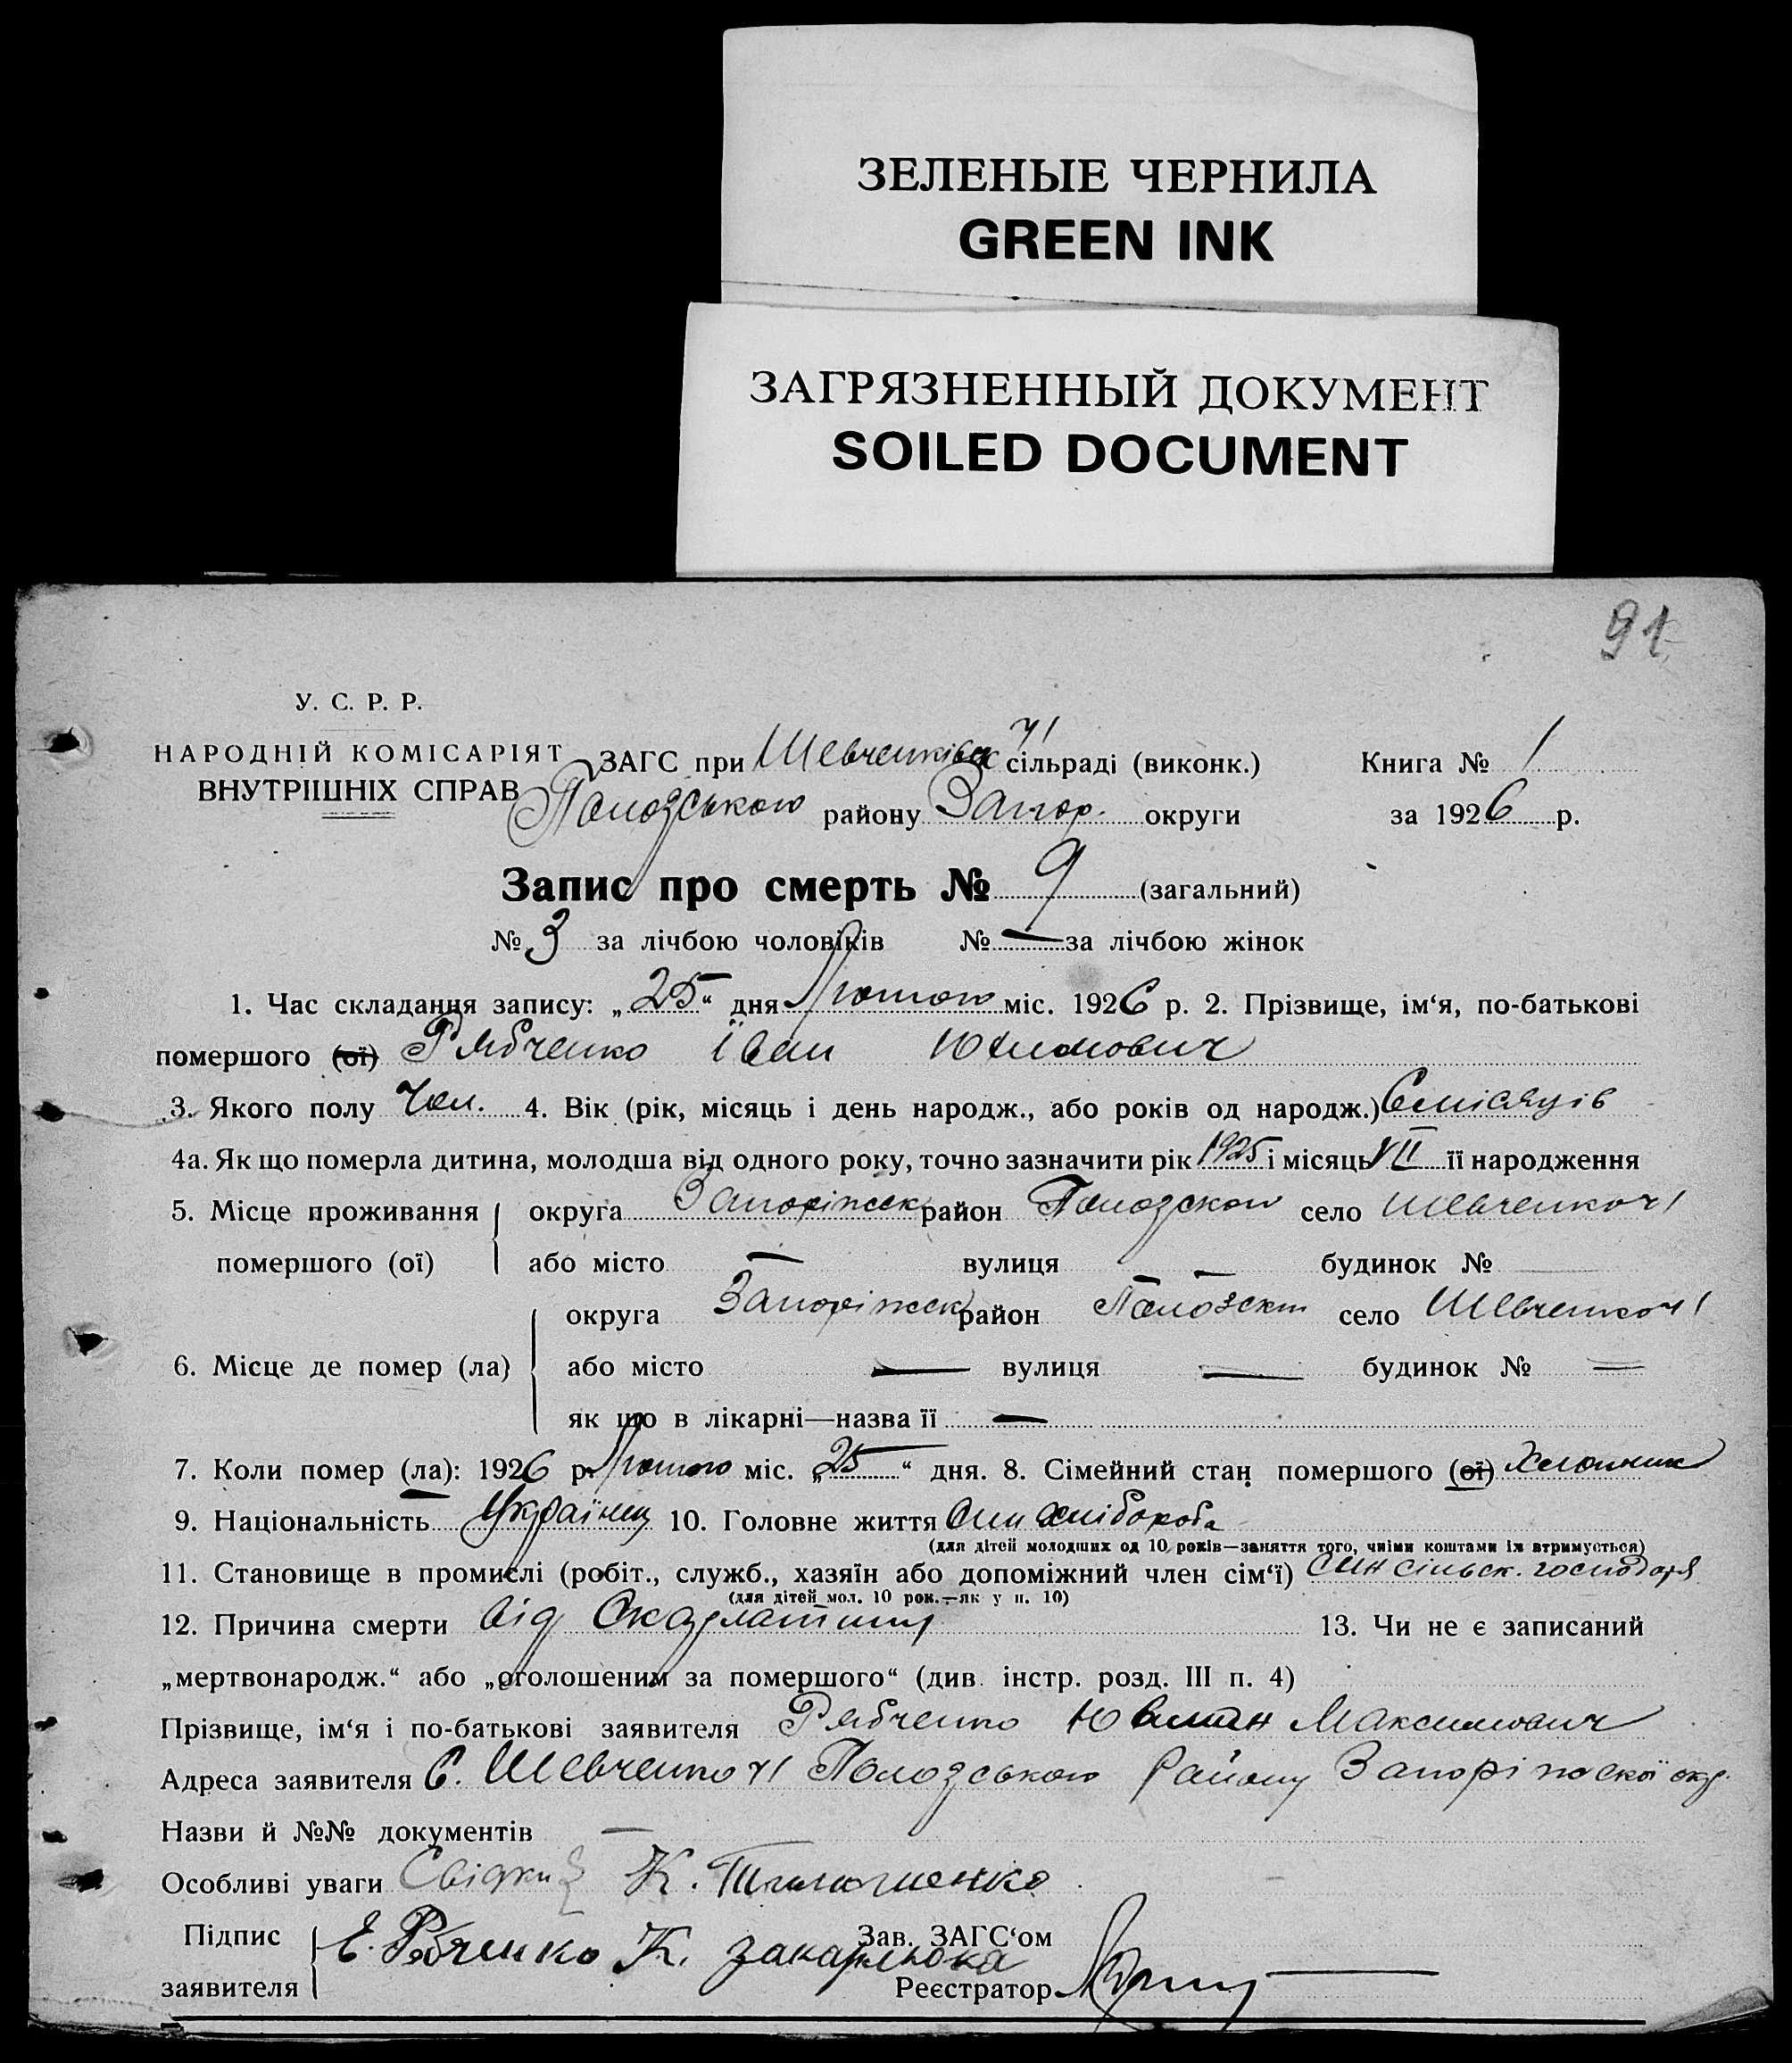 ЗЕЛЕНЫЕ ЧЕРНИЛА
GREEN INK
ЗАГРЯЗНЕННЫЙ ДОКУМЕНТ
SOILED DOCUMENT
91
У. С. Р. Р.
НАРОДНІЙ КОМІСАРІЯТ
ВНУТРІШНІХ СПРАВ
ЗАГС при Шевченківск ч1 сільраді (виконк.) Книга № 1
Пологзського району Запор. округи за 1926 р.
Запис про смерть № 9 (загальний)
№ 3 за лічбою чоловіків № — за лічбою жінок
1. Час складання запису: „25“ дня Лютого міс. 1926 р. 2. Прізвище, ім‘я, по-батькові
помершого (ої) Рябченко Іван Юхимович
3. Якого полу Чол. 4. Вік (рік, місяць і день народж., або років од народж.) 6 місяців
4а. Як що померла дитина, молодша від одного року, точно зазначити рік 1925 і місяць VII її народження
5. Місце проживання округа Запоріжск район Пологзског село Шевченко ч1
помершого (ої) або місто — вулиця — будинок № —
округа Запоріжск район село Шевченко ч1
6. Місце де помер (ла) або місто — вулиця — будинок № —
як що в лікарні—назва її —
7. Коли помер (ла): 1926 р. Лютого міс. „25“ дня. 8. Сімейний стан помершого (ої) Хлопчик
9. Національність Українец 10. Головне життя Син Хлібороба
(для дітей молодших од 10 років—заняття того, чиїми коштами їх втримується)
11. Становище в промислі (робіт., служб., хазяїн або допоміжний член сім‘ї) син сільск. господаря
(для дітей мол. 10 рок.—як у п. 10)
12. Причина смерти від Скарлатини 13. Чи не є записаний
„мертвонародж.“ або „оголошеним за помершого“ (див. інстр. розд. III п. 4)
Прізвище, ім‘я і по-батькові заявителя Рябченко Максимович
Адреса заявителя С. Шевченко ч1 Пологзського Району Запоріжскої окр.
Назви й №№ документів —
Особливі уваги Свідки К.
Підпис Е. Рябченко К. Зав. ЗАГС‘ом
заявителя Реєстратор